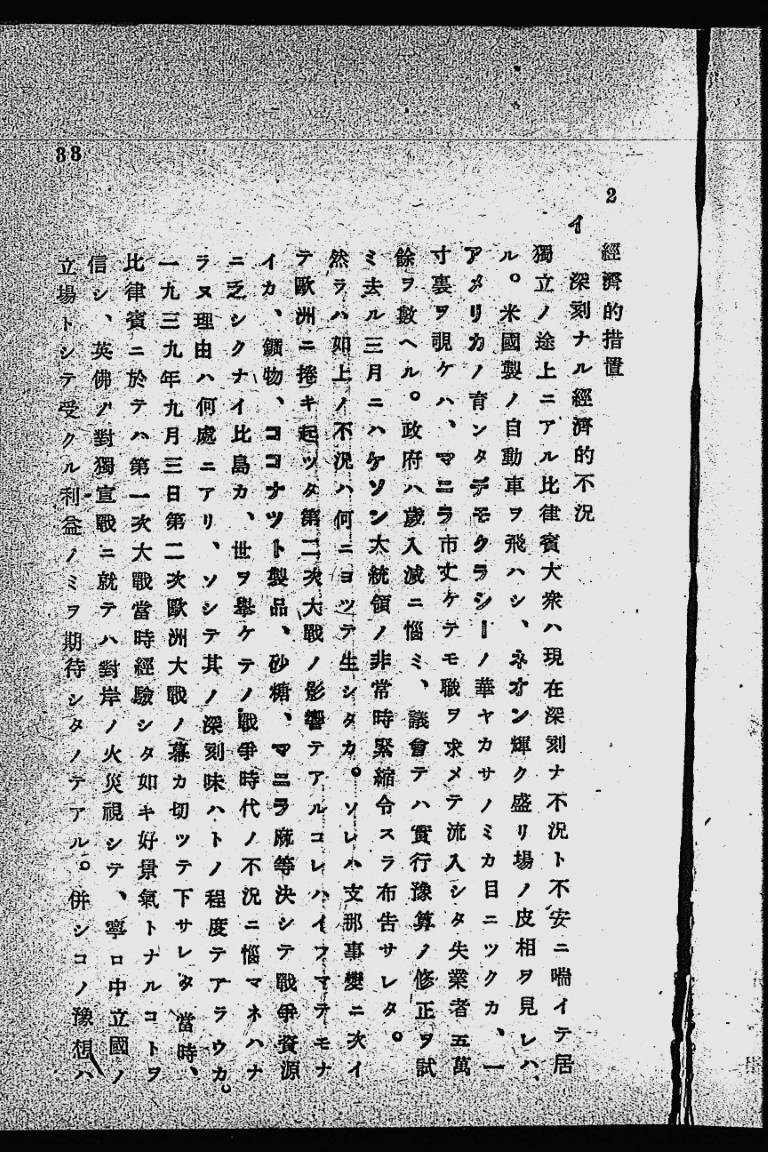 38
2 經濟的措置
イ 深刻ナル經濟的不況
獨立ノ途上ニアル比律賓大衆ハ現在深刻ナ不況ト不安ニ喘イテ居
ル。米國製ノ自動車ヲ飛ハシ、ネオン輝ク盛リ場ノ皮相ヲ見レハ、
アメリカノ育ンタデモクラシーノ華ヤカサノミカ目ニツクカ、一
寸裏ヲ覗ケハ、マニラ市丈ケテモ職ヲ求メテ流入シタ失業者五萬
餘ヲ數ヘル。政府ハ歲入減ニ惱ミ、議會テハ實行豫算ノ修正ヲ試
ミ去ル三月ニハケソン大統領ノ非常時緊縮令スラ布告サレタ。
然ラハ如上ノ不況ハ何ニヨツテ生シタカ。ソレハ支那事變ニ次イ
テ歐洲ニ捲キ起ツタ第二次大戰ノ影響テアルコレハイフマテモナ
イカ、鑛物、ココナツト製品、砂糖、マニラ麻等決シテ戰爭資源
ニ乏シクナイ比島カ、世ヲ擧ケテノ戰爭時代ノ不況ニ惱マネハナ
ラヌ理由ハ何處ニアリ、ソシテ其ノ深刻味ハトノ程度テアラウカ。
一九三九年九月三日第二次歐洲大戰ノ幕カ切ツテ下サレタ當時、
比律賓ニ於テハ第一次大戰當時經驗シタ如キ好景氣トナルコトヲ
信シ、英佛ノ對獨宣戰ニ就テハ對岸ノ火災視シテ、寧ロ中立國ノ
立場トシテ受クル利益ノミヲ期待シタノテアル。併シコノ豫想ハ